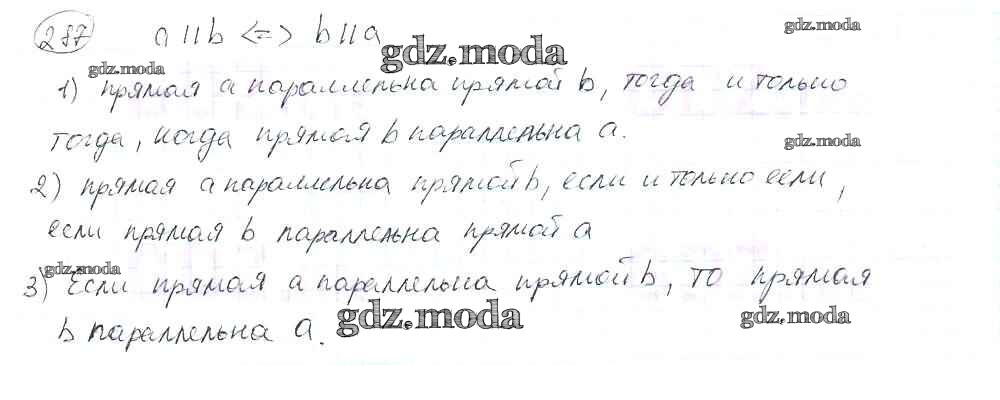 287 a || b <=> b || a
gdz.moda
gdz.moda
gdz.moda
1) прямая а параллельна прямой b, тогда и только
тогда, когда прямая b параллельна а.
gdz.moda
2) прямая а параллельна прямой b, если и только если,
если прямая b параллельна прямой а
gdz.moda
3) Если прямая а параллельна прямой b, то прямая
b параллельна а.
gdz.moda
gdz.moda